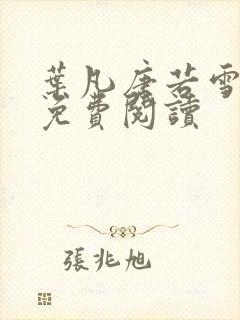 葉凡唐若雪
免費閱讀
張兆旭